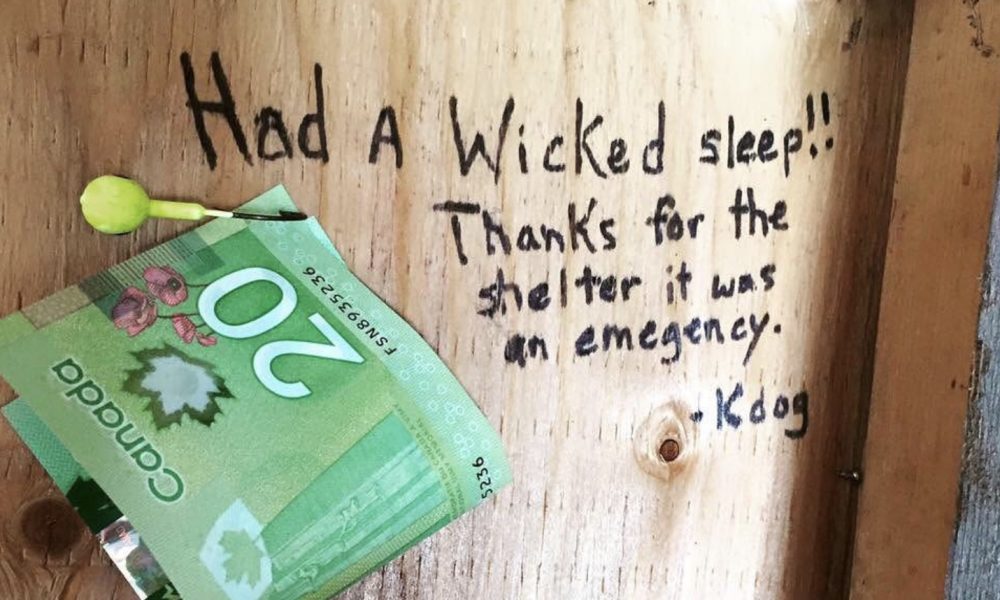 Had A Wicked sleep!!
Thanks for the
shelter it was
an emegency.
- Kdog
20
FSN8935236
Canada
5236